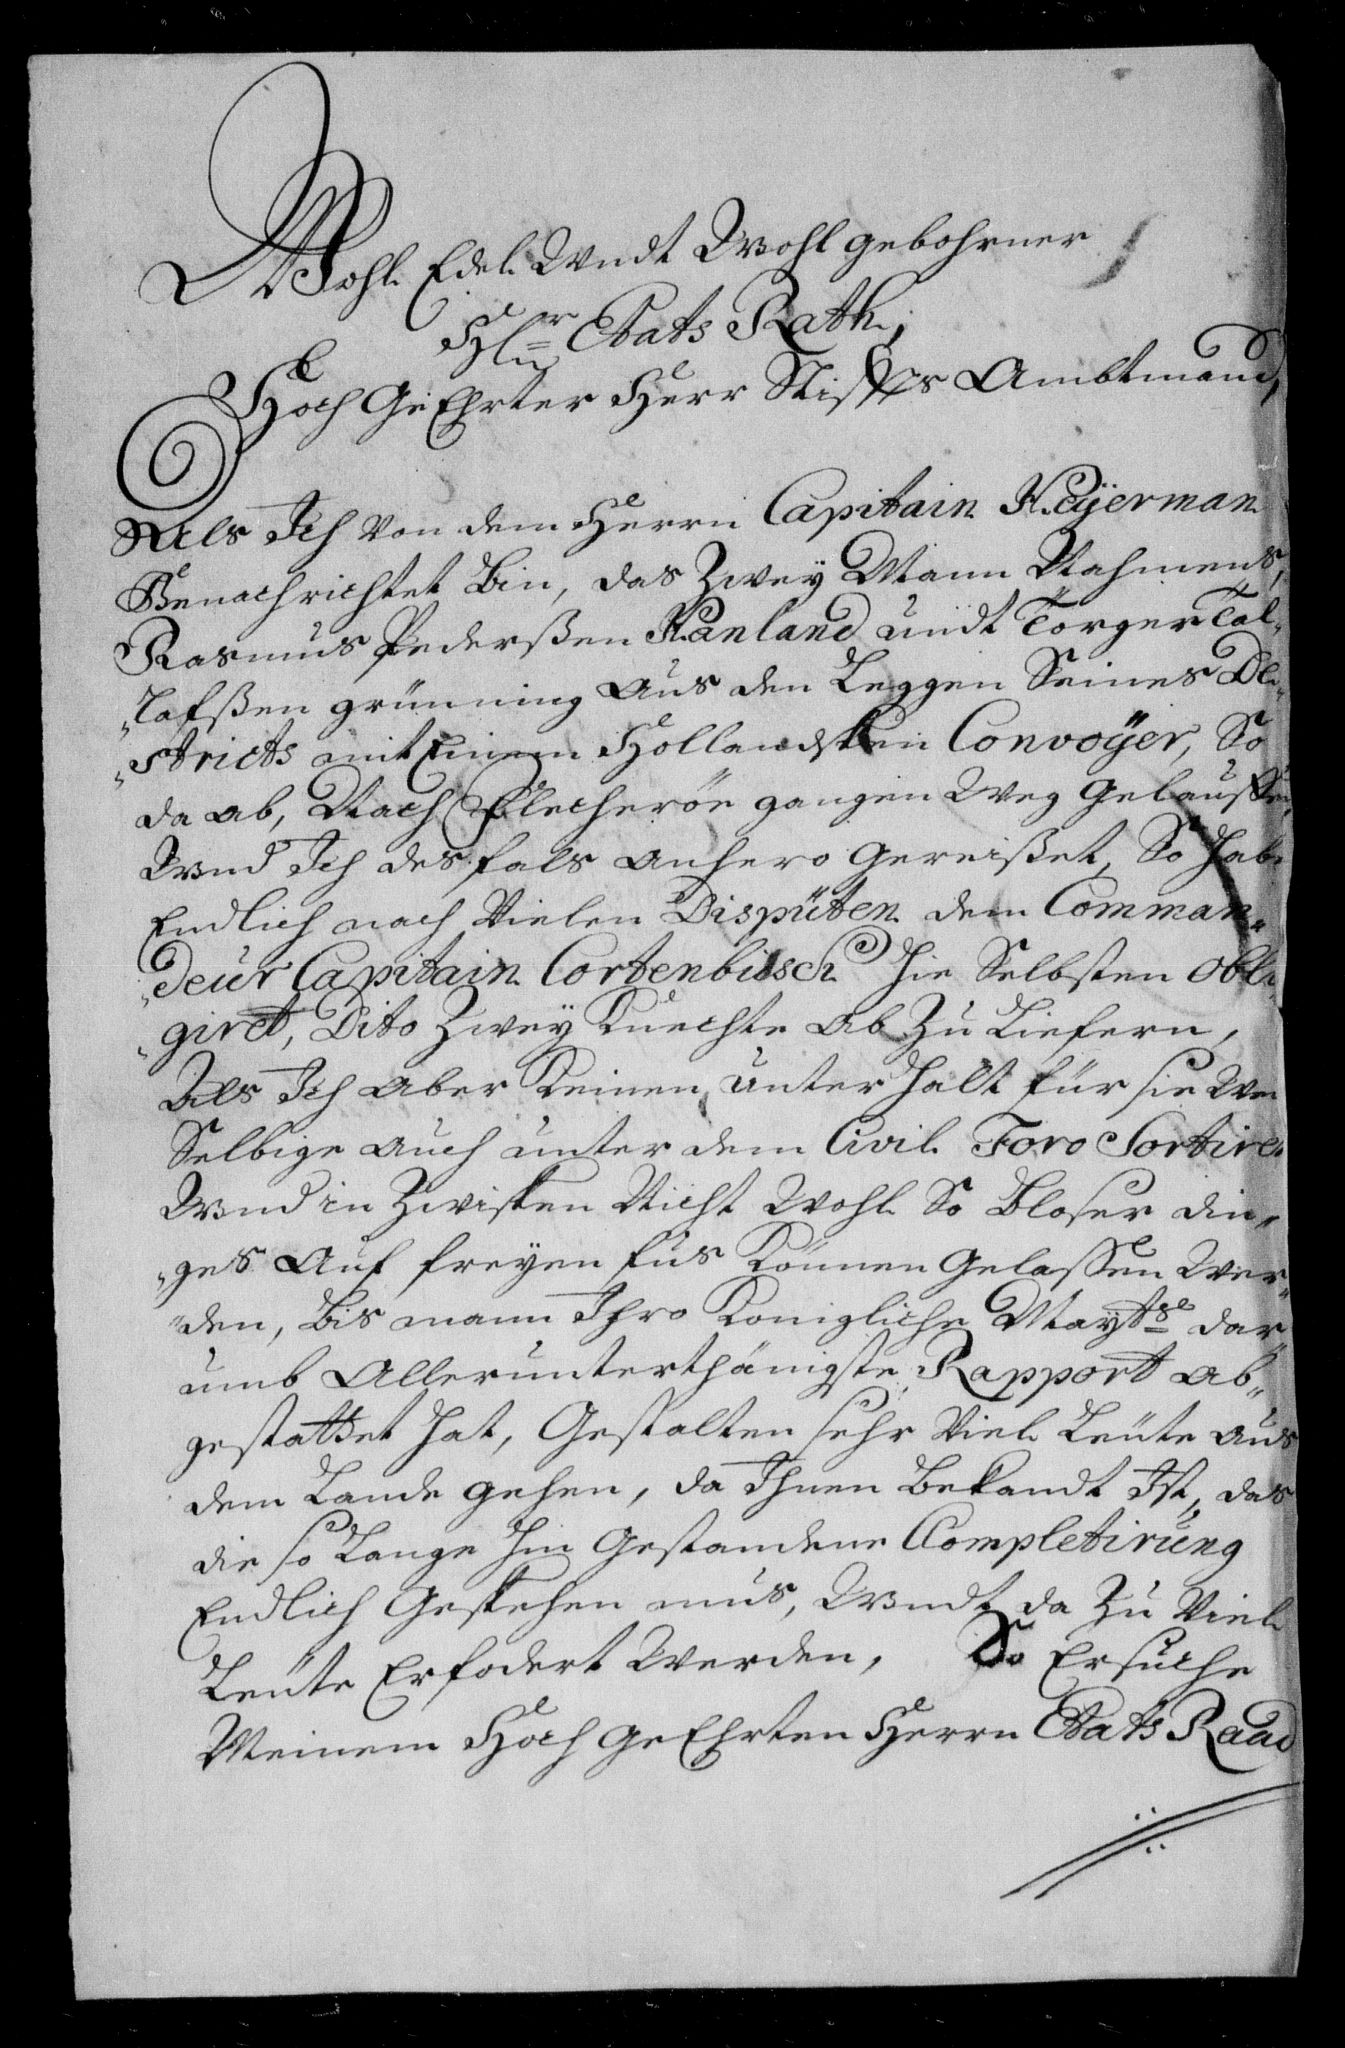 Wohl Edel Undt Wohl gebohrner
Hr Etats Rath,
Hoch GeEhrter Herr Stiffts Ambtmand,
Als Ich von dem Herrn Capitain Heÿerman
Benachrichtet bin, das Zweÿ Mann Nahmens,
Rasmus Pederßen Hanland undt Törger Tol-
„lafßen grünning aus den Leggen Seines Di-
„stricts mit Einem Hollandsken Convoÿer, So
da ab, Nach Fleckeröe gangen Weg Gelauffen,
Und Ich desfals anhero Gereißet, So habe
Endlich nach Vielen Dispüten dem Comman-
„deur Capitain Cortenbosch hie Selbsten obli-
„giret, Dito Zweÿ Knechte ab Zu Liefern,
Als Ich aber Keinen unterhalt für sie
Selbige auch unter dem Civil Foro Sortire
Und in Zwisken Nicht Wohl So bloser din-
„ges Auf freyen fus Können Gelassen Wer-
„den, bis mann Ihro Konigliche Mayts dar-
umb Allerunterthänigste Rapport ab-
gestattet hat, Gestalten sehr Viel Leute aus
dem Lande gehen, da Ihnen bekandt Ist, das
die so Lange hin Gestandene Completirung
Endlich Geskehen mus, Undt da Zu Viel
Leute Erfodert Werden, So Ersuche
Meinem Hoch GeEhrten Herrn Etats Raad